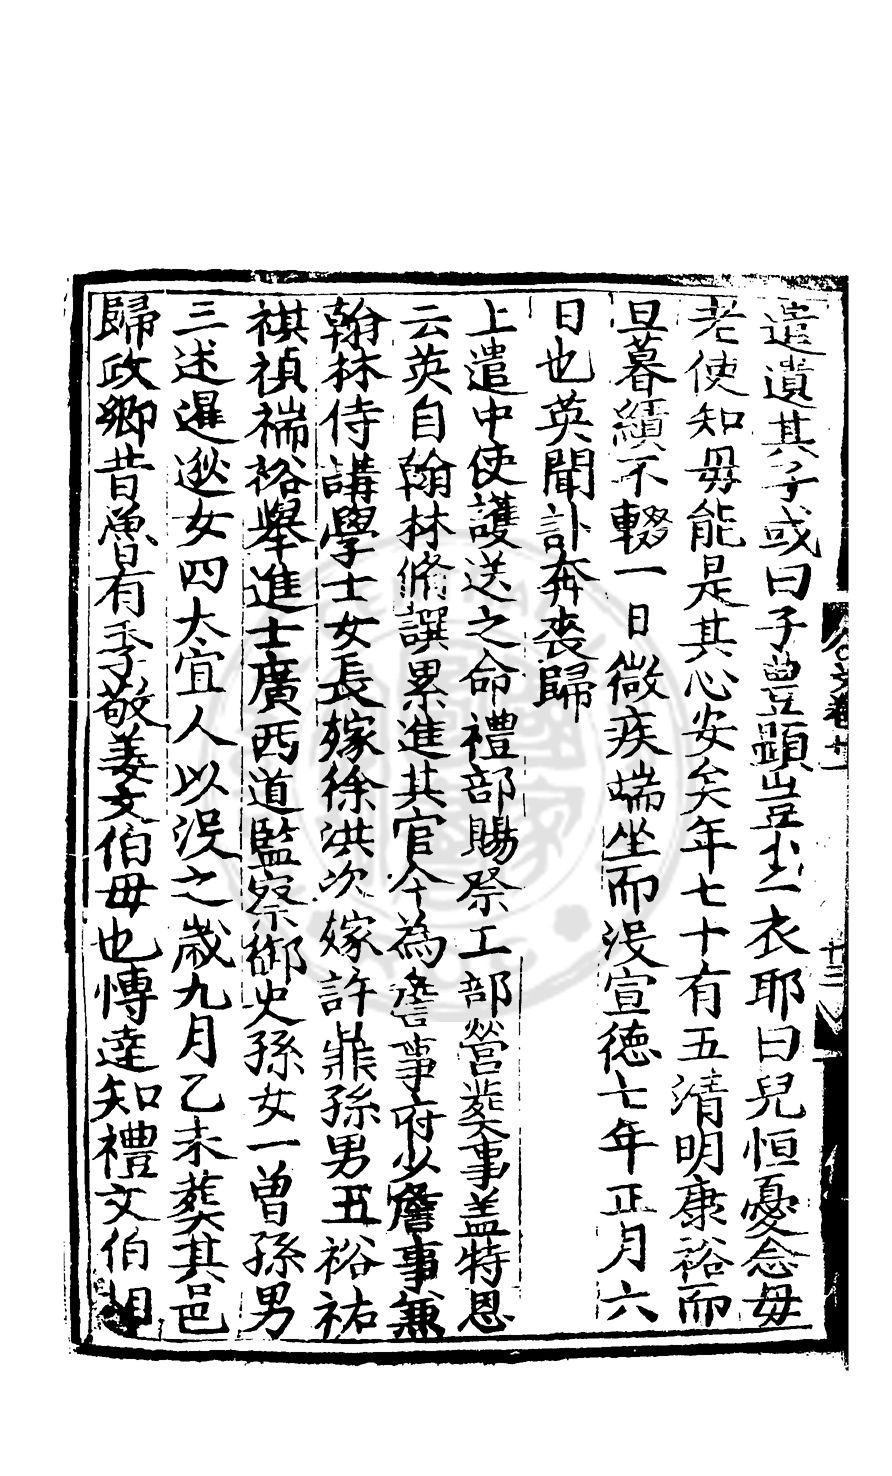 遣遺其子或曰子豊顯豈少一衣耶曰兒恒憂念毋
老使知毋能是其心安矣年七十有五清明康裕而
旦暮績不輟一日微疾端坐而沒宣德七年正月六
日也英聞訃奔喪歸
上遣中使護送之命禮部賜祭工部營葬事盖特恩
云英自翰林脩譔累進其官今為詹事府少詹事兼
翰林侍講學士女長嫁徐洪次嫁許鼎孫男五裕祐
祺禎褍𥙿舉進士廣西道監察御史孫女一曾孫男
三述暹逖女四太宜人以沒之歲九月乙未葬其邑
歸政鄉昔魯有季敬姜文伯毋也慱達知禮文伯相
文卷廿一
十三